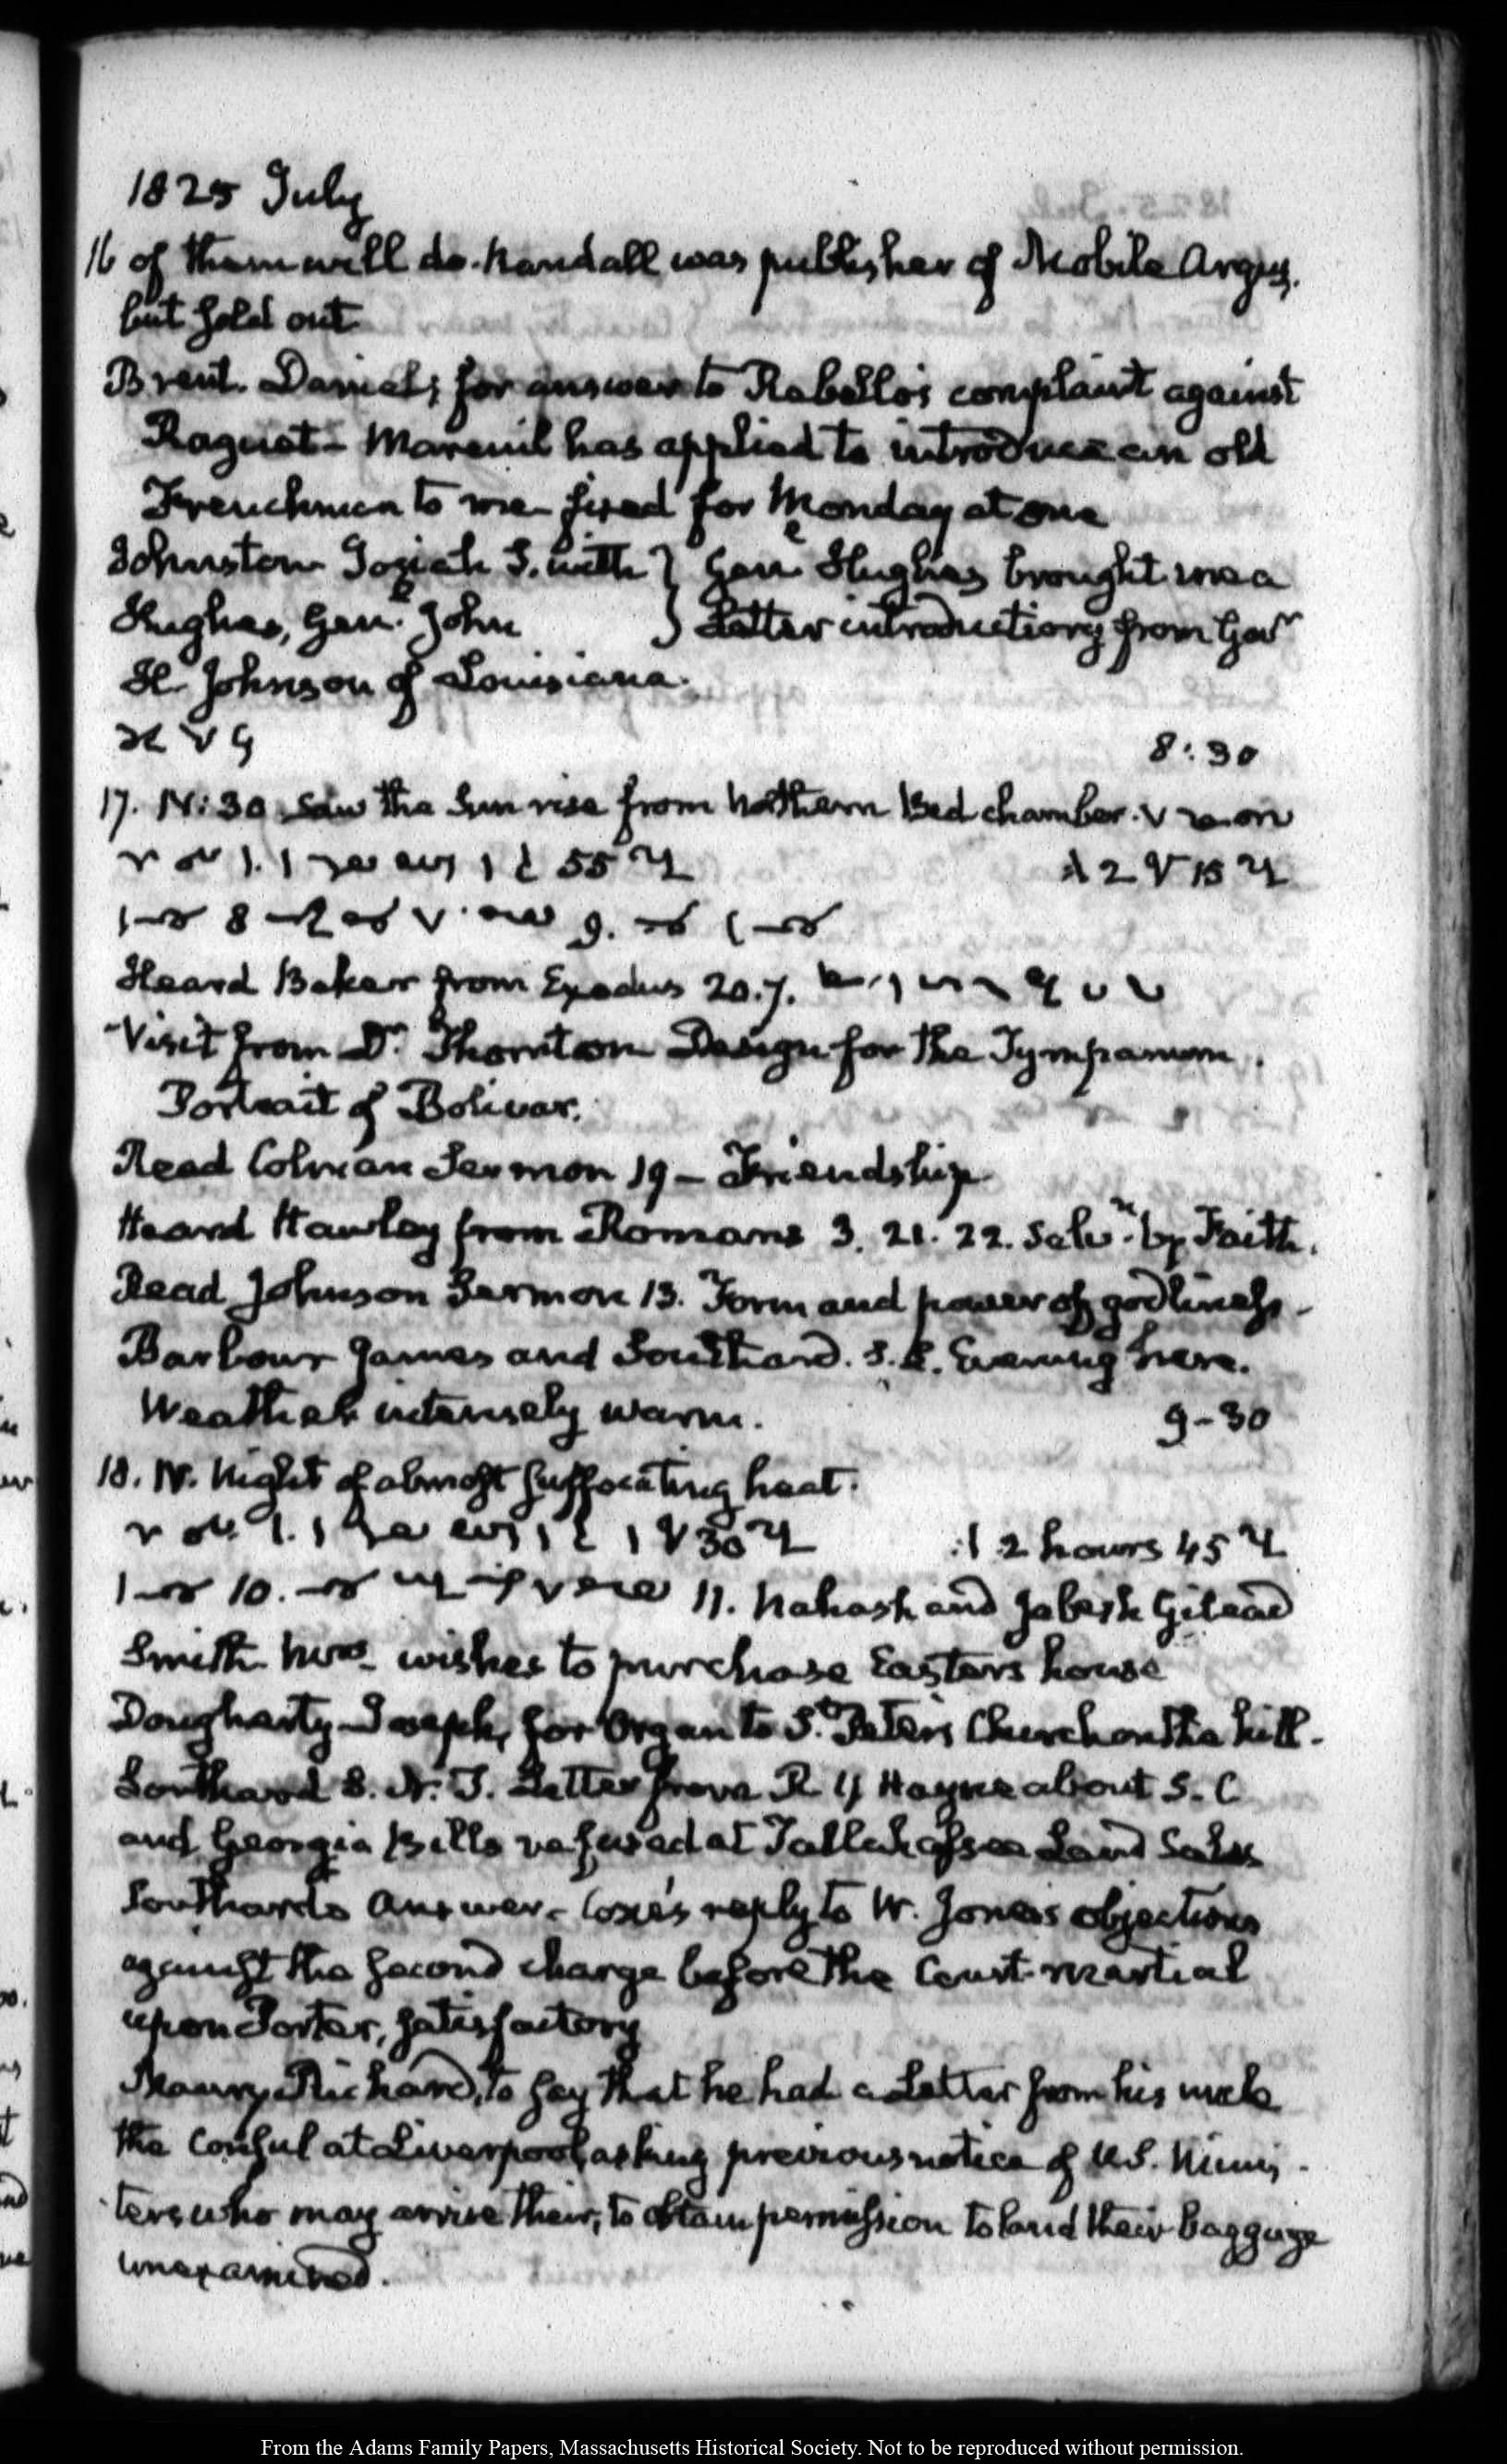 1825 July
16 of them will do. Randall was publisher of Mobile Argus,
but sold out
Brent. Daniel; for answer to Rebello's complaint against
Raguet – Mareuil has applied to introduce an old
Frenchman to me – fixed for Monday at one
Johnston Josiah S. with } Genl. Hughes brought me a
Hughes, Genl. John } Letter introductory from Govr
H. Johnson of Louisiana.
8:30
17. IV:30 Saw the Sun rise from Northern Bed chamber.
55 2 15
8 9.
Heard Baker from Exodus 20.7.
Visit from Dr. Thornton Design for the Tympanum.
Portrait of Bolivar.
Read Colman Sermon 19 – Friendship
Heard Hawley from Romans 3. 21. 22. Salvn. by Faith.
Read Johnson Sermon 13. Form and power of godliness –
Barbour James and Southard. S. L. Evening here.
Weather intensely warm. 9-30
18. IV. Night of almost suffocating heat.
30 2 hours 45
10. 11. Nahash and Jabesh Gilead
Smith Mrs – wishes to purchase Easter's house
Dougherty Joseph, for Organ to St. Peter's Church on the hill –
Southard S. N. J. Letter from R Y Hayne about S. C
and Georgia Bills refused at Tallahassee Land Sales
Southard's Answer – Coxe's reply to W. Jones's objections
against the second charge before the Court-martial
upon Porter, satisfactory
Maury Richard, to say that he had a Letter from his uncle
the Consul at Liverpool asking previous notice of U.S. Minis-
ters who may arrive their, to obtain permission to land their baggage
unexamined.
From the Adams Family Papers, Massachusetts Historical Society. Not to be reproduced without permission.